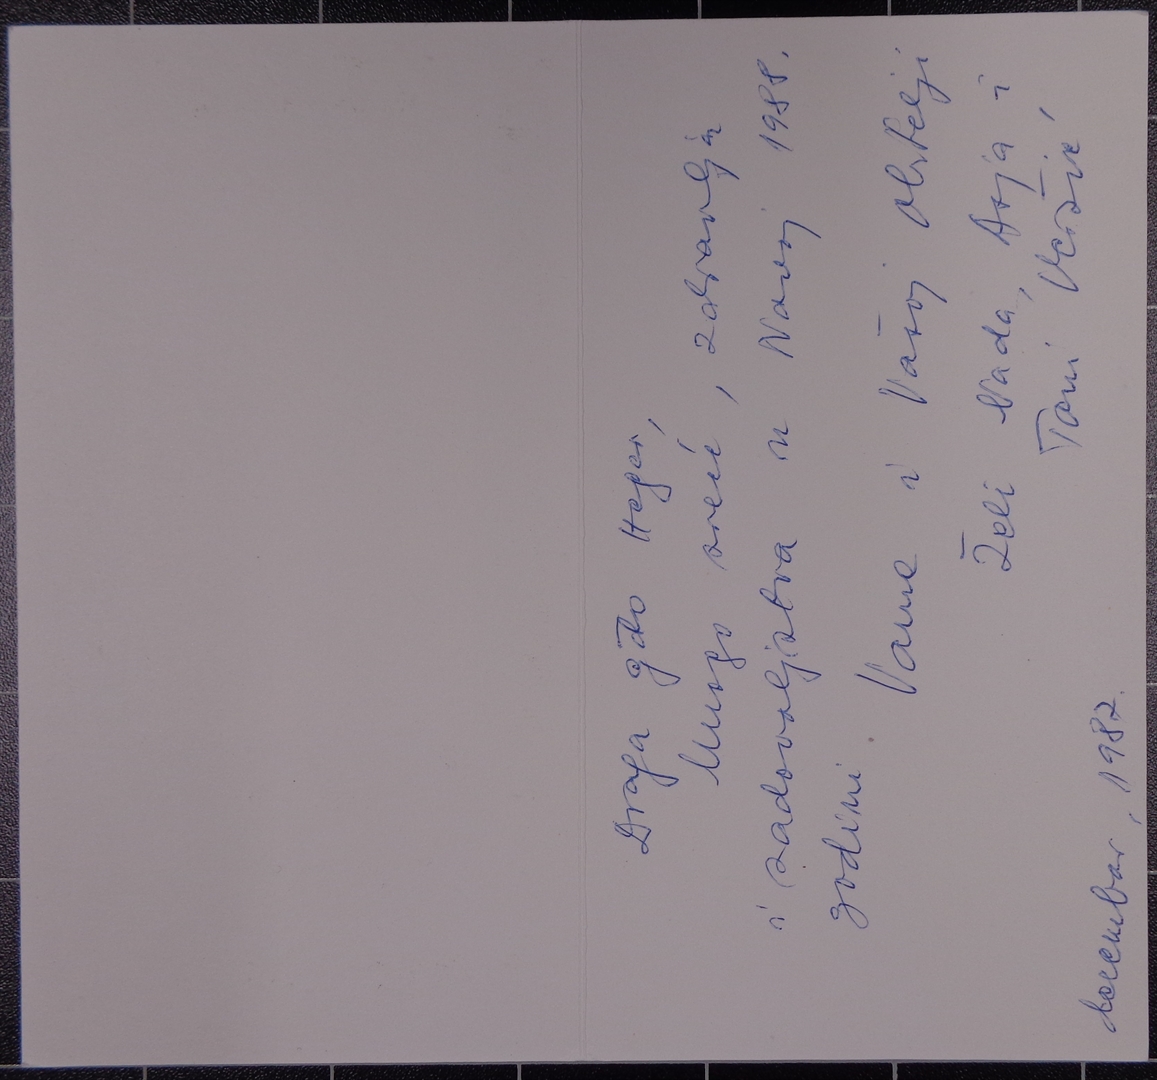 Draga gđo Heger,
Mnogo sreće, zdravlja
i zadovoljstva u Novoj 1988.
godini
Vama i Vašoj obitelji
Želi Nada, Asja i
Toni
decembar, 1987.